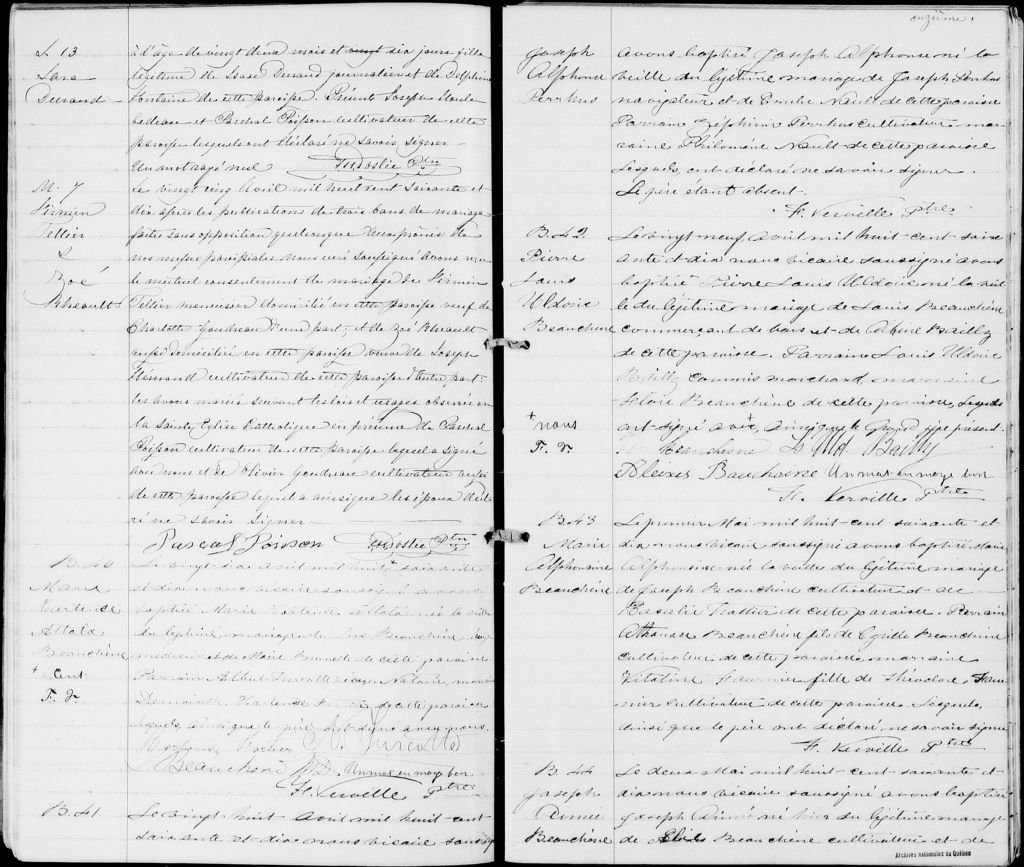 S. 13
Sara
Durand
à l'âge de vingt deux mois et vingt six jours fille
légitime de Isaac Durand journalier et de Delphine
Fontaine de cette paroisse. Présents Joseph
et Paschal Poisson cultivateur de cette
paroisse lesquels ont déclaré ne savoir signer
Un mot rayé nul
Ptre
M. 7
Firmin
Tellier
&
Zoé
Rheault
Le vingt cinq Avril mil huit cent soixante et
dix après les publications de trois bans de mariage
faites sans opposition quelconque aux prônes de
nos messes paroissiales nous curé soussigné avons reçu
le mutuel consentement de mariage de Firmin
Tellier menuisier domicilié en cette paroisse veuf de
Charlotte Goudreau d'une part, et de Zoé Rheault
aussi domiciliée en cette paroisse veuve de Joseph
Hémond cultivateur de cette paroisse d'autre part:
les avons mariés suivant les lois et usages observés en
la Sainte Eglise Catholique en présence de Paschal
Poisson cultivateur de cette paroisse lequel a signé
avec nous et de Olivier Goudreau cultivateur aussi
de cette paroisse lequel a ainsi que les époux décla
ré ne savoir signer
Pascal Poisson
Ptre
B. 40
Marie
Hortence
Attala
Beauchène
+ cent
F. V.
Le vingt six avril mil huit + soixante
et dix nous vicaire soussigné avons
baptisé Marie Hortence Attala née la veille
du légitime mariage de Beauchène
médecin et de Marie de cette paroisse
Parrain Notaire, marraine
Demoiselle Hortense de cette paroisse
lesquels, ainsi que le père, ont signé avec nous.
Beauchène M.D. Un mot en marge bon.
F. Verville Ptre
B. 41
Le vingt huit Avril mil huit cent
soixante et dix nous vicaire soussigné
onzième.
Joseph
Alphonse
Perrhus
avons baptisé Joseph Alphonse né la
veille du légitime mariage de Joseph Perrhus
navigateur et de Emilie Nault de cette paroisse
Parrain Zéphirin Perrhus cultivateur mar-
raine Philomène Nault de cette paroisse
Lesquels, ont déclaré ne savoir signer.
Le père étant absent.
F. Verville Ptre
B. 42
Pierre
Louis
Uldoric
Beauchène
+
nous
F. V.
Le vingt neuf Avril mil huit-cent soix-
ante et dix nous vicaire soussigné avons
baptisé Pierre Louis Uldoric né la veil
le du légitime mariage de Louis Beauchène
commerçant de bois et de Bailly
de cette paroisse. Parrain Louis Uldoric
Bailly commis marchand, marraine
Flore Beauchène de cette paroisse, lesquels
ont signé avec + ainsi que le Grand père présent.
Beauchesne L. Uld Bailly
Alexis Beauchesne Un mot en marge bon
F. Verville Ptre
B. 43
Marie
Alphonsine
Beauchène
Le premier Mai mil huit-cent soixante et
dix nous vicaire soussigné avons baptisé Marie
Alphonsine née la veille du légitime mariage
de Joseph Beauchène cultivateur et de
Rosalie Trottier de cette paroisse. Parrain
Athanase Beauchène fils de Cyrille Beauchène
cultivateur de cette paroisse, marraine
Vitaline Fournier fille de Théodore Four
nier cultivateur de cette paroisse. Lesquels,
ainsi que le père ont déclaré, ne savoir signer
F. Verville Ptre
B. 44
Joseph
Aimé
Beauchène
Le deux Mai mil huit-cent soixante et
dix nous vicaire soussigné avons baptisé
Joseph Aimé né hier du légitime mariage
de Beauchène cultivateur et de
Archives nationales du Québec